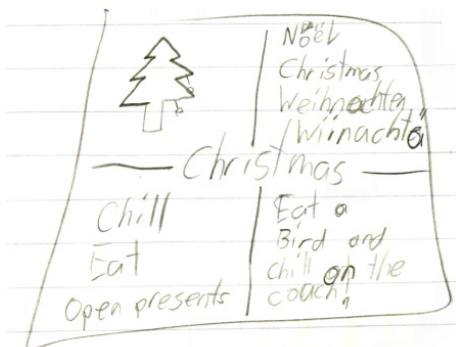 Noël
Christmas
Weihnachten
/Wiinachtä
Christmas
Chill
Eat
Open presents
Eat a
Bird and
chill on the
coach!